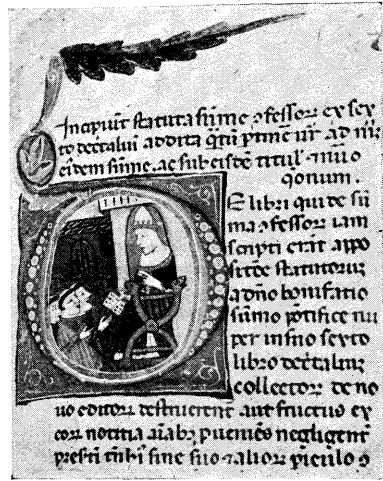 Incipiũt statuta sũme ɔfessoꝝ ex sex
to decťaliũ addita
eiusdem sũme. ac sub eisdẽ titul᷒ ⁊ nũo
qõnum.
E libri qui de sũ
ma ɔfessoꝝ iam
scripti erãt appo
sitõe statutoruꝫ
a dño bonifatio
sũmo põtifice nu
per in suo sexto
libro decťaliuꝫ
collectoꝝ de no
uo editoꝝ destruerent᷒ aut fructus ex
eoꝝ notitia aĩabꝫ ꝓueniẽs negligerent᷒
sine suo ⁊ alioꝝ ꝑiculo